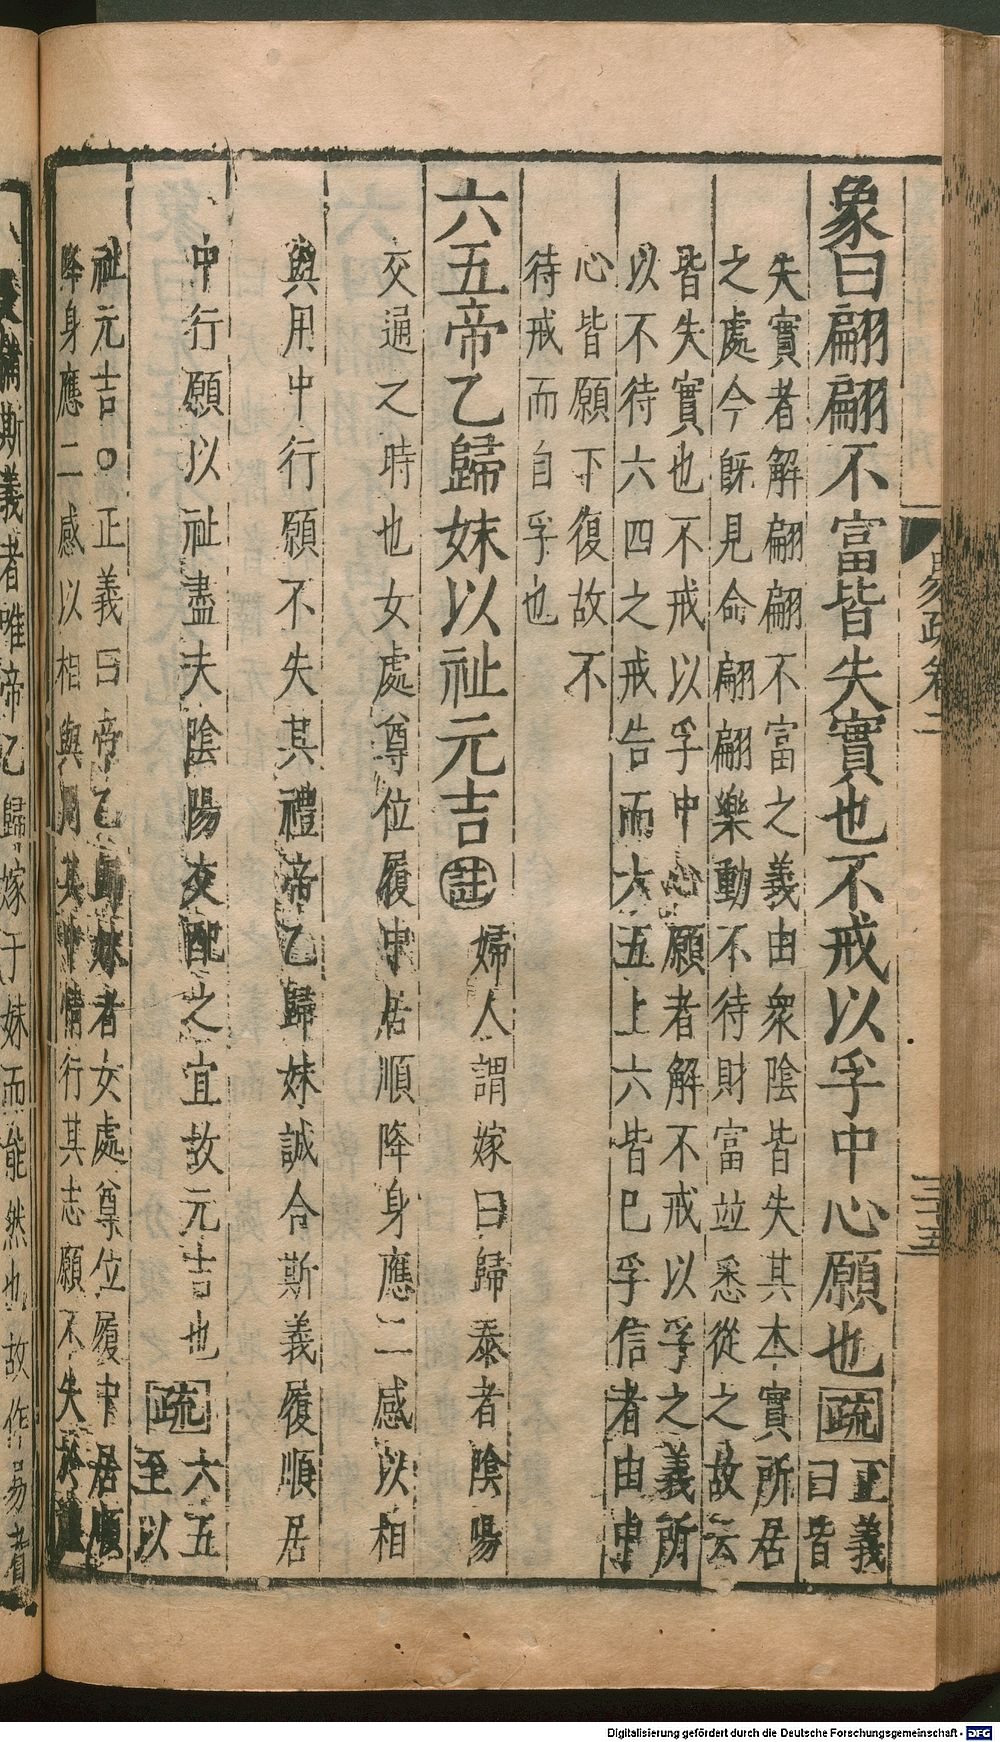 易疏卷二
三十五
象曰翩翩不富皆失實也不戒以孚中心願也疏正義
曰皆
失實者解翩翩不富之義由衆陰皆失其本實所居
之處今既見命翩翩樂動不待財富並悉從之故云
皆失實也不戒以孚中心願者解不戒以孚之義所
以不待六四之戒告而六五上六皆巳孚信者由中
心皆願下復故不
待戒而自孚也
六五帝乙歸妹以祉元吉註婦人謂嫁曰歸泰者陰陽
交通之時也女處尊位履中居順降身應二感以相
與用中行願不失其禮帝乙歸妹誠合斯義履順居
中行願以祉盡夫陰陽交配之宜故元吉也疏六五
至以
祉元吉○正義曰帝乙歸妹者女處尊位履中居順
降身應二感以相與用其中情行其志願不失於禮
斯義者唯帝乙歸嫁于妹而能然也故作易者
Digitalisierung gefördert durch die Deutsche Forschungsgemeinschaft - DFG